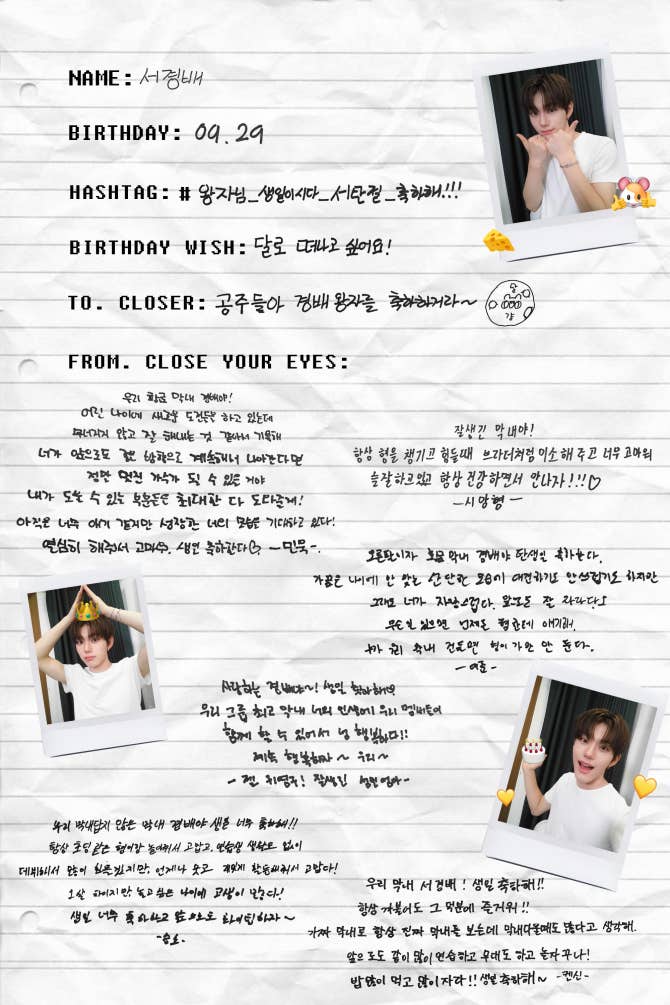 NAME: 서경배
BIRTHDAY: 09.29
HASHTAG: # 왕자님_생일이시다_서탄절_축하해!!!
BIRTHDAY WISH: 달로 떠나고 싶어요!
TO. CLOSER: 공주들아 경배 왕자를 축하하거라~
FROM. CLOSE YOUR EYES:
우리 황금 막내 경배야!
어린 나이에 새로운 도전들을 하고 있는데
무너지지 않고 잘 해내는 것 같아서 기특해
너가 앞으로도 같은 방향으로 계속해서 나아간다면
정말 멋진 가수가 될 수 있을 거야
내가 도울 수 있는 부분들은 최대한 다 도와줄게!
아직은 너무 애기 같지만 성장한 너의 모습을 기대하고 있다!
열심히 해줘서 고마워. 생일 축하한다♡ -민욱-.
잘생긴 막내야!
항상 형을 챙기고 힘들때 브라더처럼 미소 해 주고 너무 고마워
슬 잘하고 있고 항상 건강하면서 만나자!!!♡
-시앙형-
오른팔이자 황금막내 경배야 탄생일 축하한다.
가끔은 나이에 안 맞는 산단한 모습이 대견하기도 안쓰럽기도 하지만
그래도 너가 자랑스럽다. 앞으로도 잘 자라다오
무슨 일 있으면 언제든 형한테 얘기해.
우리 막내 건들면 형이 가만 안 둔다.
-여준-
사랑하는 경배야~! 생일 축하해♡
우리 그룹 최고 막내 너의 인생에 우리 멤버들이
함께 할 수 있어서 넘 행복하다!!
계속 행복하자~ 우리~
- 전 귀염둥! 잘생긴 성민 엄마-
우리 막내답지 않은 막내 경배야 생일 너무 축하해!!
항상 초딩같은 형이랑 놀아줘서 고맙고, 연습생 생활도 없이
데뷔해서 많이 힘들겠지만, 언제나 웃고 재밌게 활동해줘서 고맙다!
고생 많다!
생일 너무 축하하고 앞으로도 화이팅하자~
-승호-
우리 막내 서경배! 생일 축하해!!
항상 까불어도 그 덕분에 즐거워!!
가짜 막내로 항상 진짜 막내를 보는데 막내다울때도 많다고 생각해.
앞으로도 같이 많이 연습하고 무대도 하고 놀자꾸나!
밥 많이 먹고 많이 자라!! 생일 축하해~ -켄신-